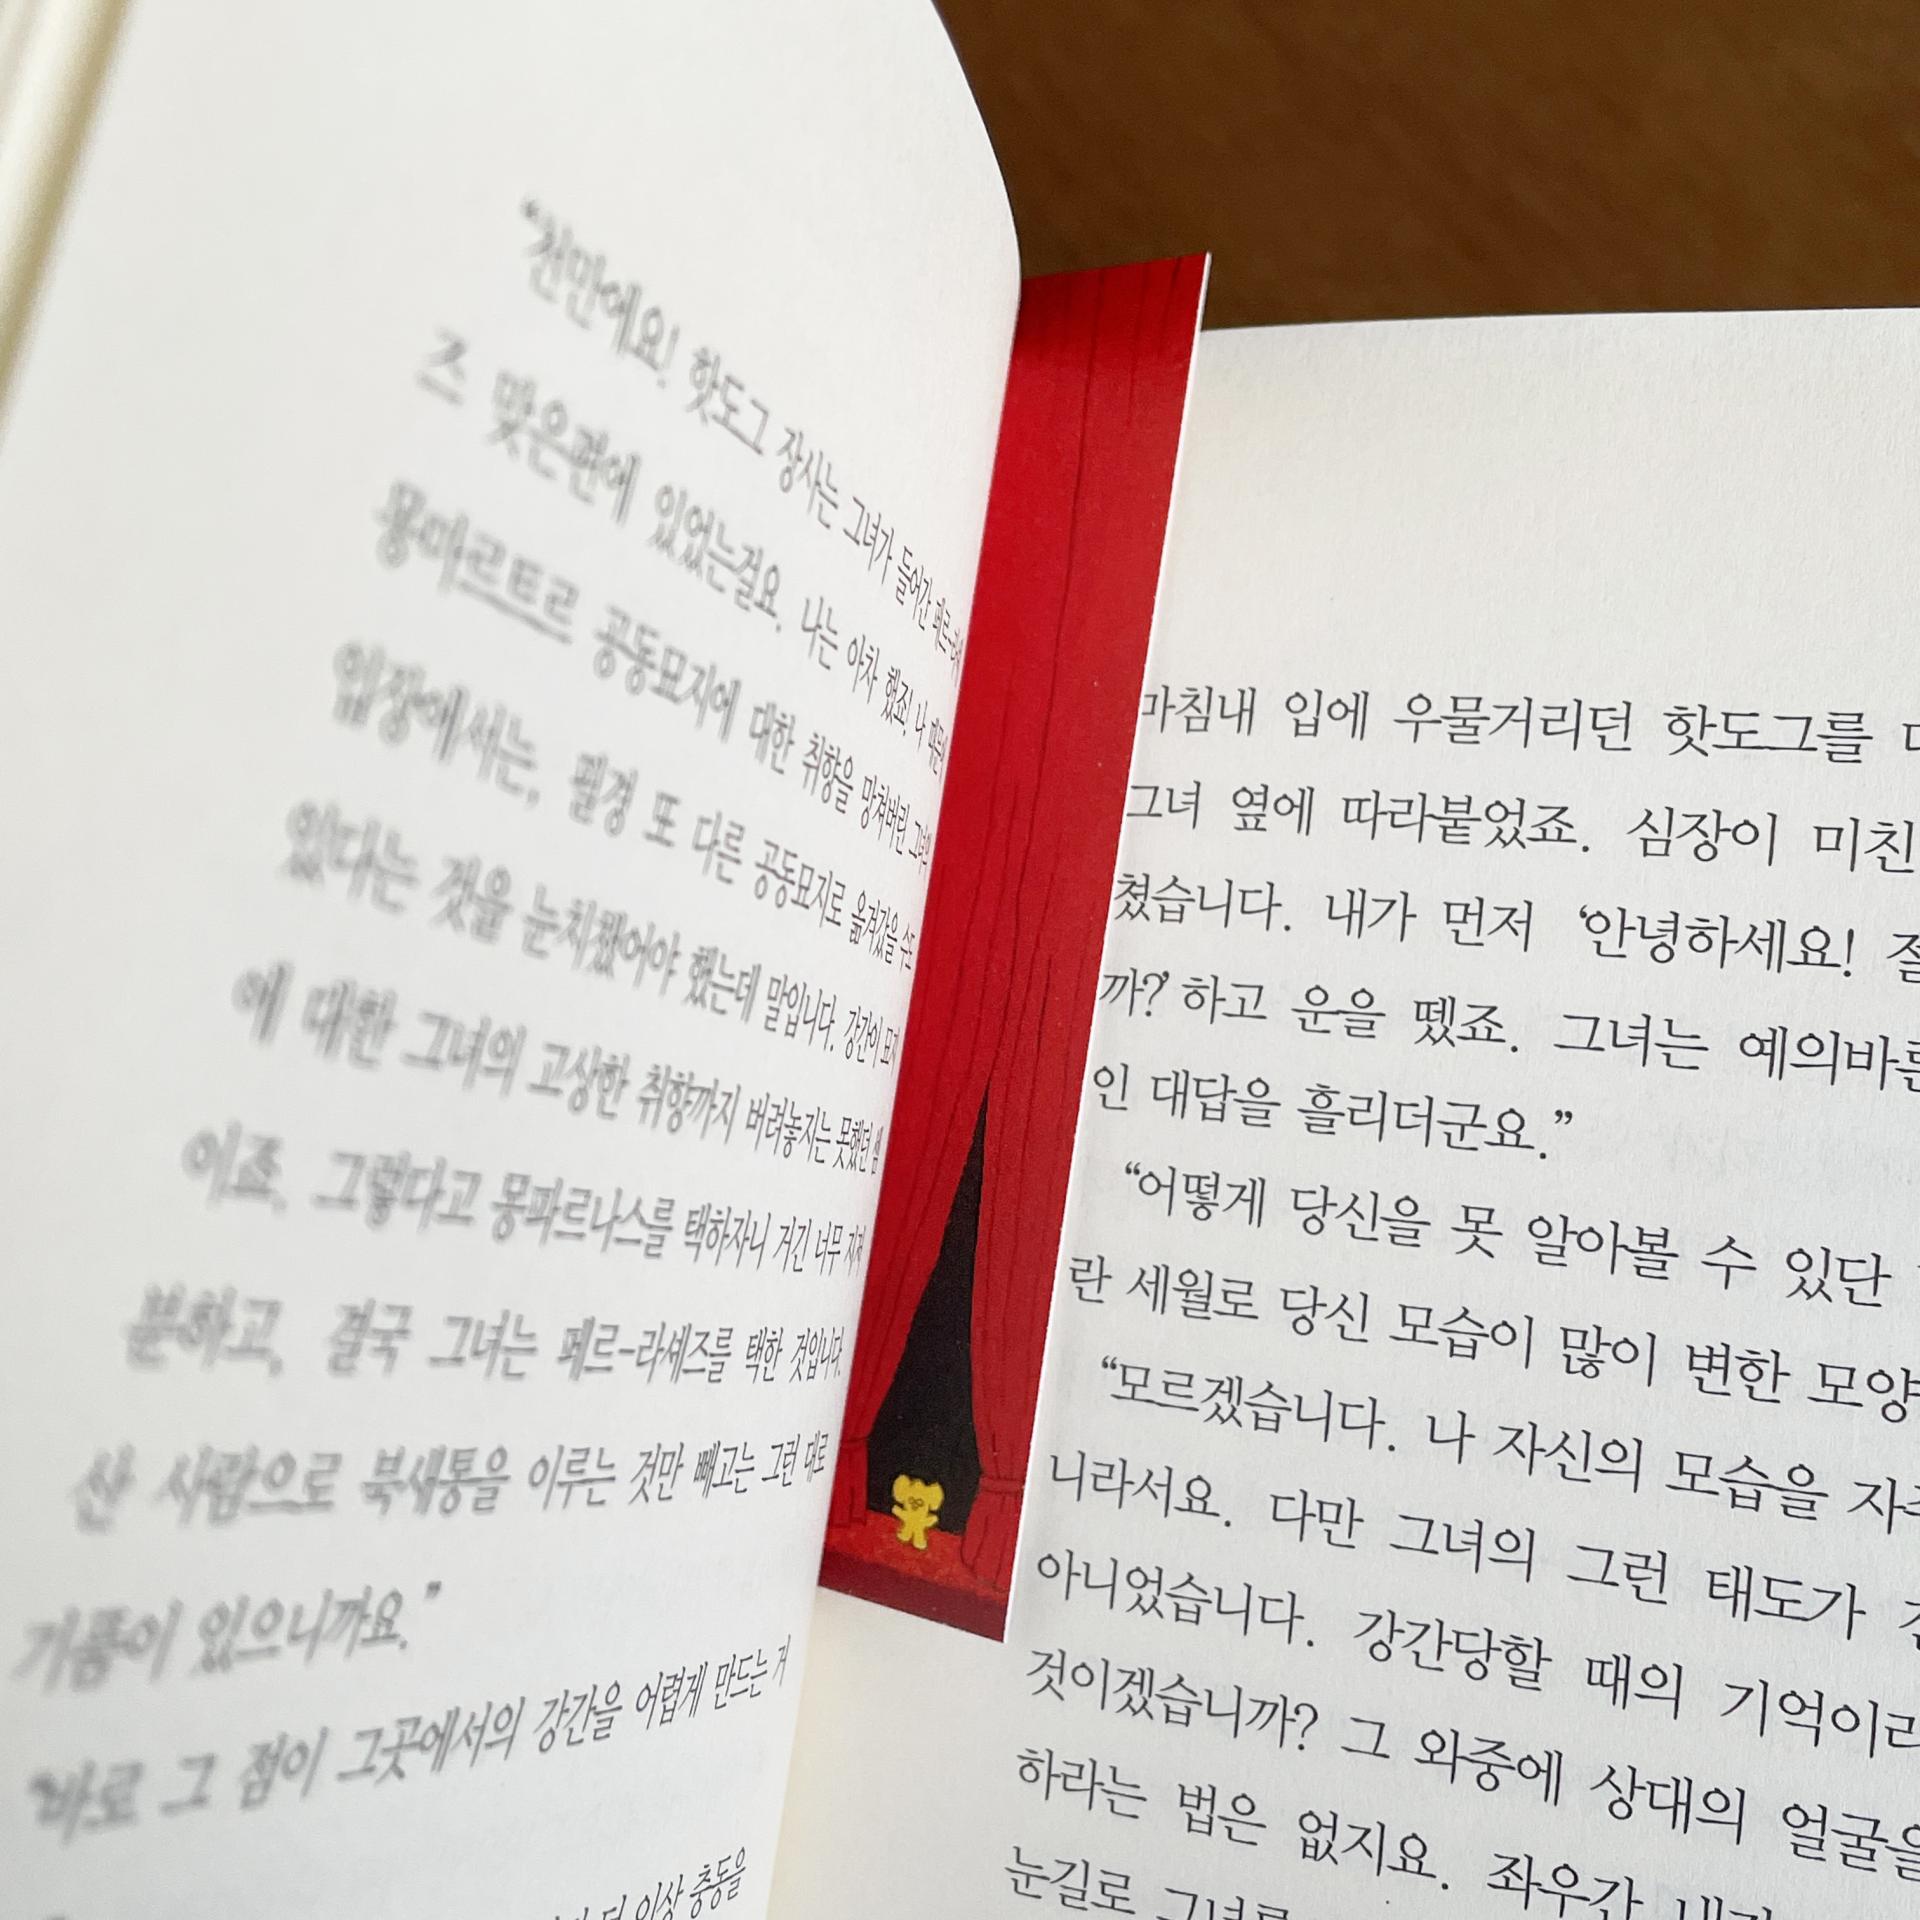 "천만에요! 핫도그 장사는 그녀가 들어간 페르-라셰
즈 맞은편에 있었는걸요. 나는 아차 했죠! 나 때문에
몽마르트르 공동묘지에 대한 취향을 망쳐버린 그녀의
입장에서는, 필경 또 다른 공동묘지로 옮겨갔을 수도
있다는 것을 눈치챘어야 했는데 말입니다. 강간이 묘지
에 대한 그녀의 고상한 취향까지 버려놓지는 못했던 셈
이죠. 그렇다고 몽파르나스를 택하자니 거긴 너무 지저
분하고, 결국 그녀는 페르-라셰즈를 택한 것입니다.
산 사람으로 북새통을 이루는 것만 빼고는 그런 대로
기품이 있으니까요."
"바로 그 점이 그곳에서의 강간을 어렵게 만드는 거
이상 충동을
마침내 입에 우물거리던 핫도그를
그녀 옆에 따라붙었죠. 심장이 미친
쳤습니다. 내가 먼저 '안녕하세요!
까?' 하고 운을 뗐죠. 그녀는 예의바른
인 대답을 흘리더군요."
"어떻게 당신을 못 알아볼 수 있단
란 세월로 당신 모습이 많이 변한 모양
"모르겠습니다. 나 자신의 모습을
니라서요. 다만 그녀의 그런 태도가
아니었습니다. 강간당할 때의 기억이라
것이겠습니까? 그 와중에 상대의 얼굴을
하라는 법은 없지요. 좌우간
눈길로 그녀를